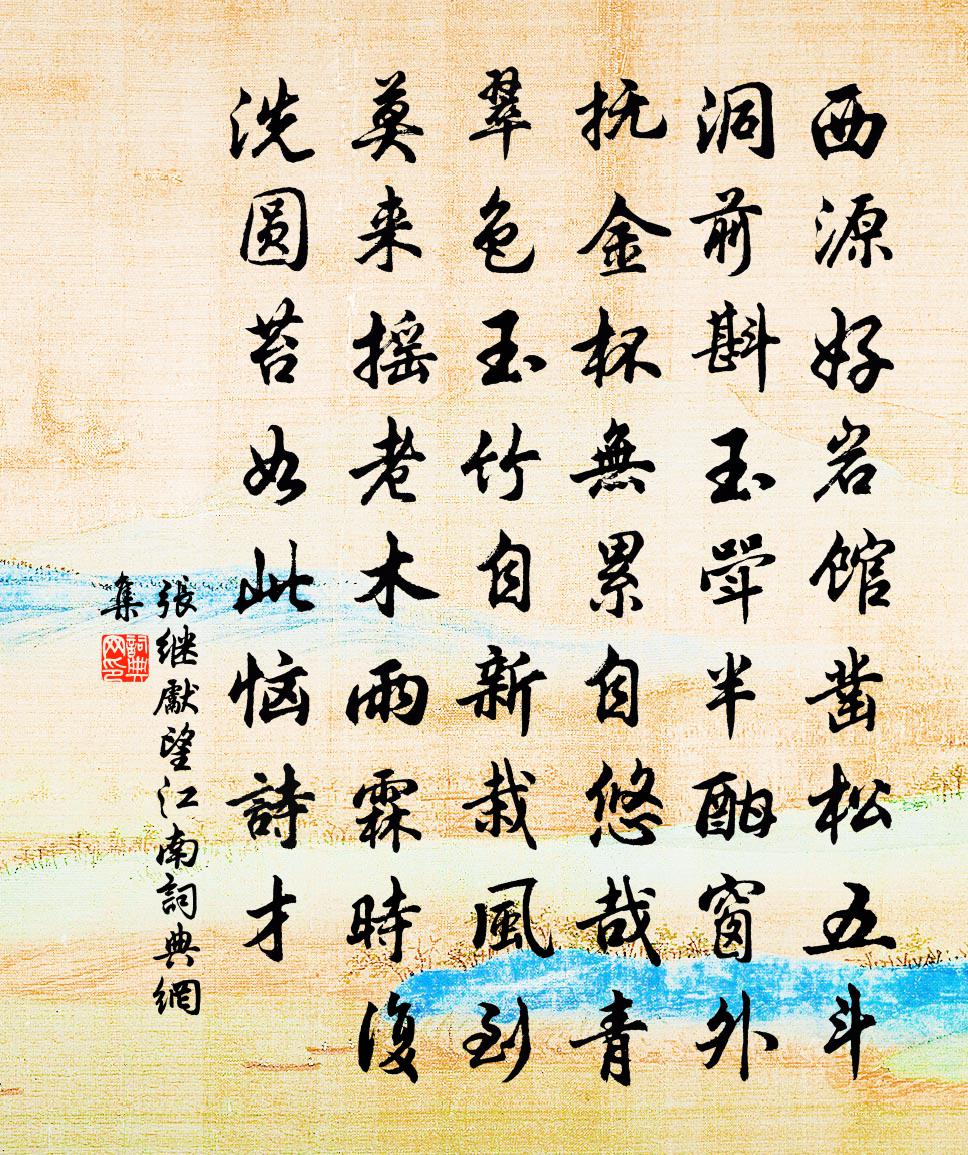 西源好岩馆凿松五斗
洞前斟玉斝半酣窗外
抚金杯無累自悠哉青
翠色玉竹自新栽風到
莫来摇老木雨霖時復
洗圆苔如此恼詩才
張继獻望江南詞典網
集
詞典网印